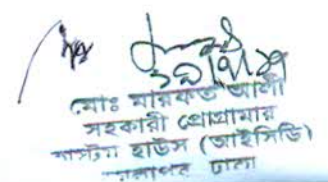 মোঃ মারফত আলী
সহকারী প্রোগ্রামার
কাস্টম হাউস (আইসিডি)
কমলাপুর ঢাকা